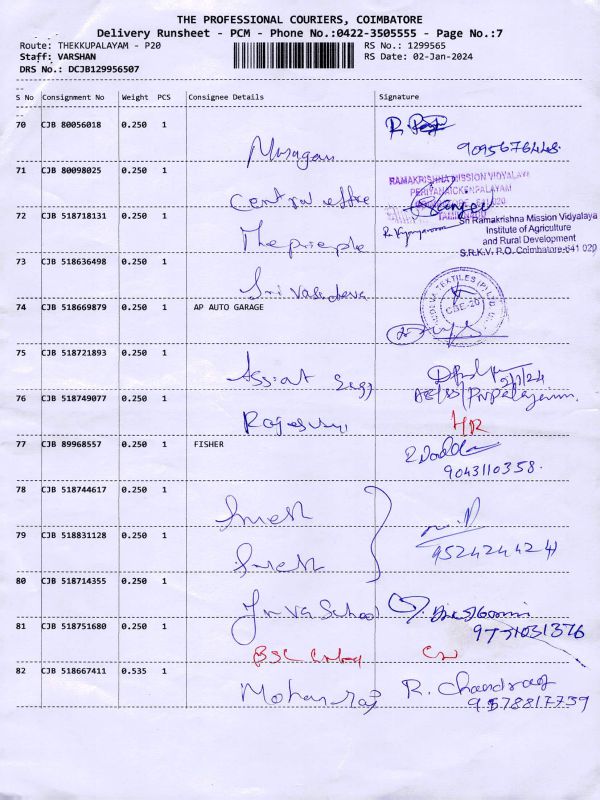 THE PROFESSIONAL COURIERS, COIMBATORE
Delivery Runsheet - PCM - Phone No.:0422-3505555 - Page No.:7
Route: THEKKUPALAYAM - P20 RS No.: 1299565
Staff: VARSHAN RS Date: 02-Jan-2024
DRS No.: DCJB129956507
S No Consignment No Weight PCS Consignee Details Signature
70 CJB 80056018 0.250 1
Murugan 9095676448
71 CJB 80098025 0.250 1
RAMAKRISHNA MISSION VIDYALAYA
PERIYANAICKENPALAYAM
Central office
72 CJB 518718131 0.250 1
Sri Ramakrishna Mission Vidyalaya
Institute of Agriculture
and Rural Development
The principle
S.R.K.V. P.O. Coimbatore-641 020
73 CJB 518636498 0.250 1
Srivasudeva
74 CJB 518669879 0.250 1 AP AUTO GARAGE
CBE-20
75 CJB 518721893 0.250 1
2/1/24
76 CJB 518749077 0.250 1
77 CJB 89968557 0.250 1 FISHER
9043110358
78 CJB 518744617 0.250 1
79 CJB 518831128 0.250 1
9524244241
80 CJB 518714355 0.250 1
School
81 CJB 518751680 0.250 1
9751031376
82 CJB 518667411 0.535 1
Mohanraj R. Chandraa
9578817759